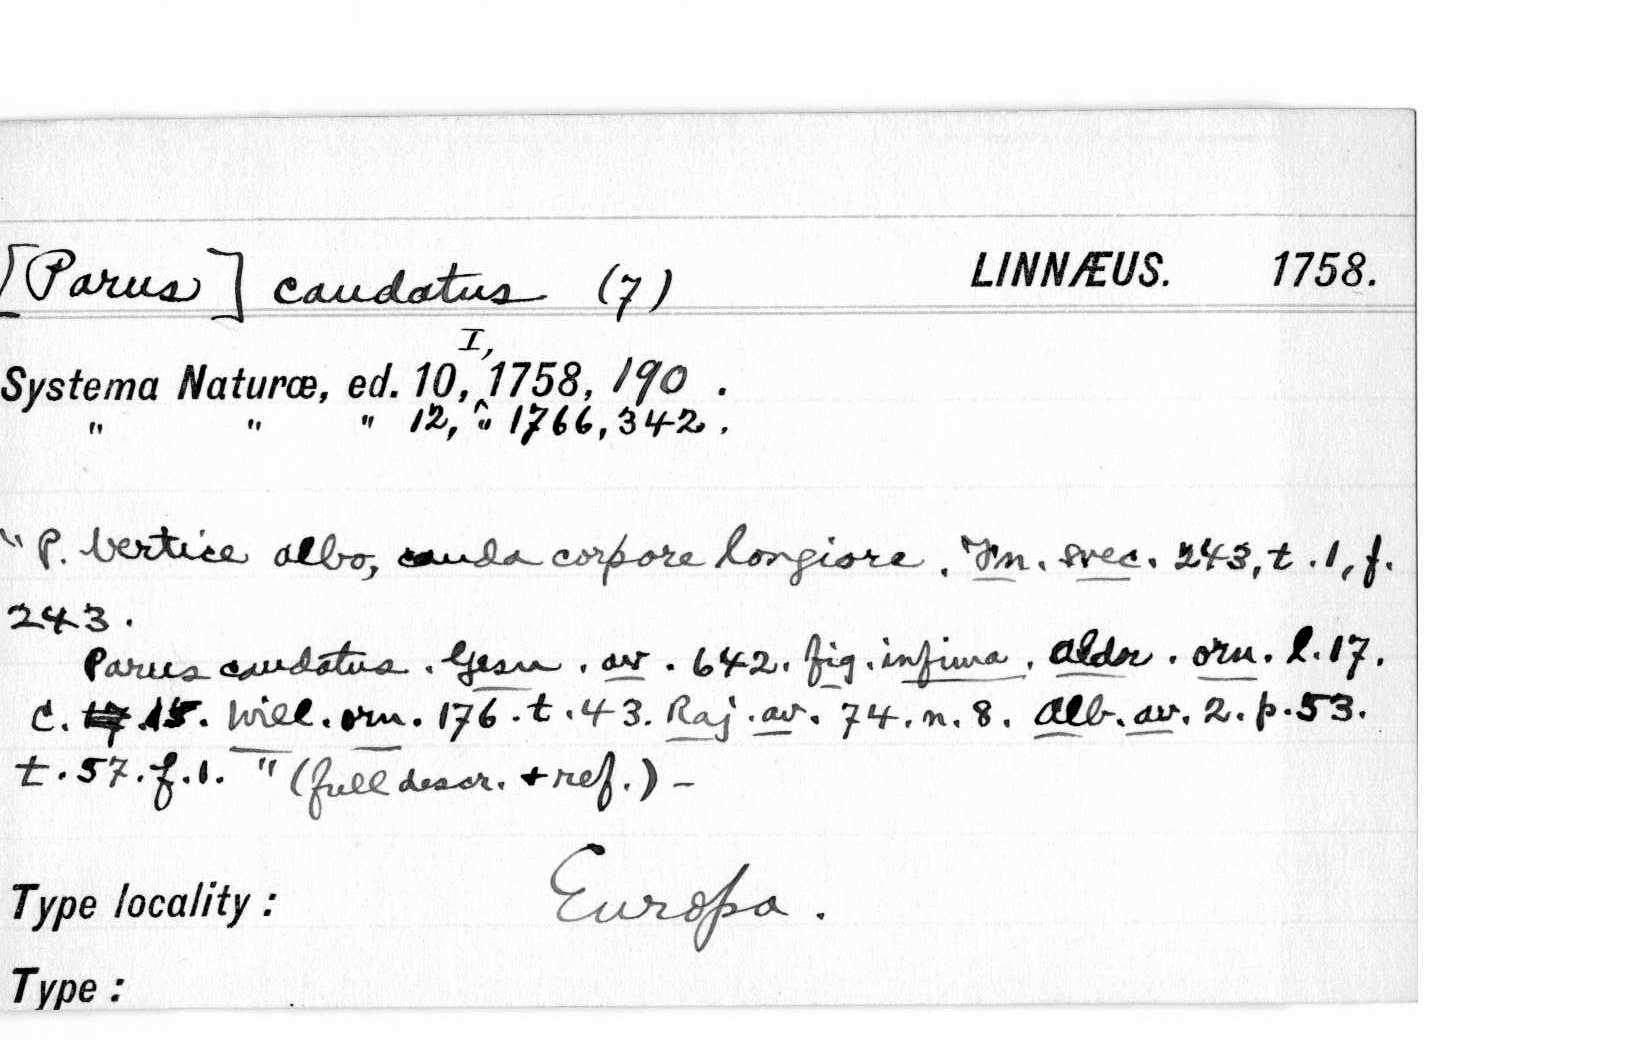 [Parus] caudatus (7) LINNÆUS. 1758.
Systema Naturæ, ed. 10, I, 1758, 190 .
" " " 12, " 1766, 342 .
" P. vertice albo, cauda corpore longiore . Fn. svec. 243, t . 1, f.
243 .
Parus caudatus . Gesn . av . 642 . fig . infima . Aldr . orn . l . 17 .
c . 17 15 . Will . orn . 176 . t . 43 . Raj . av . 74 . n . 8 . Alb . av . 2 . p . 53 .
t . 57 . f . 1 . " (full descr. + ref.) –
Type locality : Europa .
Type :